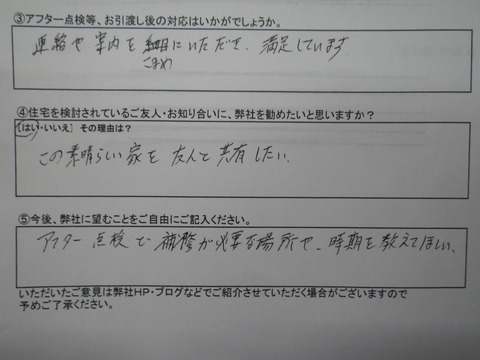 ③アフター点検等、お引渡し後の対応はいかがでしょうか。
連絡や案内を細目にいただき、満足しています
こまめ
④住宅を検討されているご友人・お知り合いに、弊社を勧めたいと思いますか？
[はい・いいえ] その理由は？
この素晴らしい家を友人と共有したい。
⑤今後、弊社に望むことをご自由にご記入ください。
アフター点検で補修が必要な場所や、時期を教えてほしい、
いただいたご意見は弊社HP・ブログなどでご紹介させていただく場合がございますので
予めご了承ください。